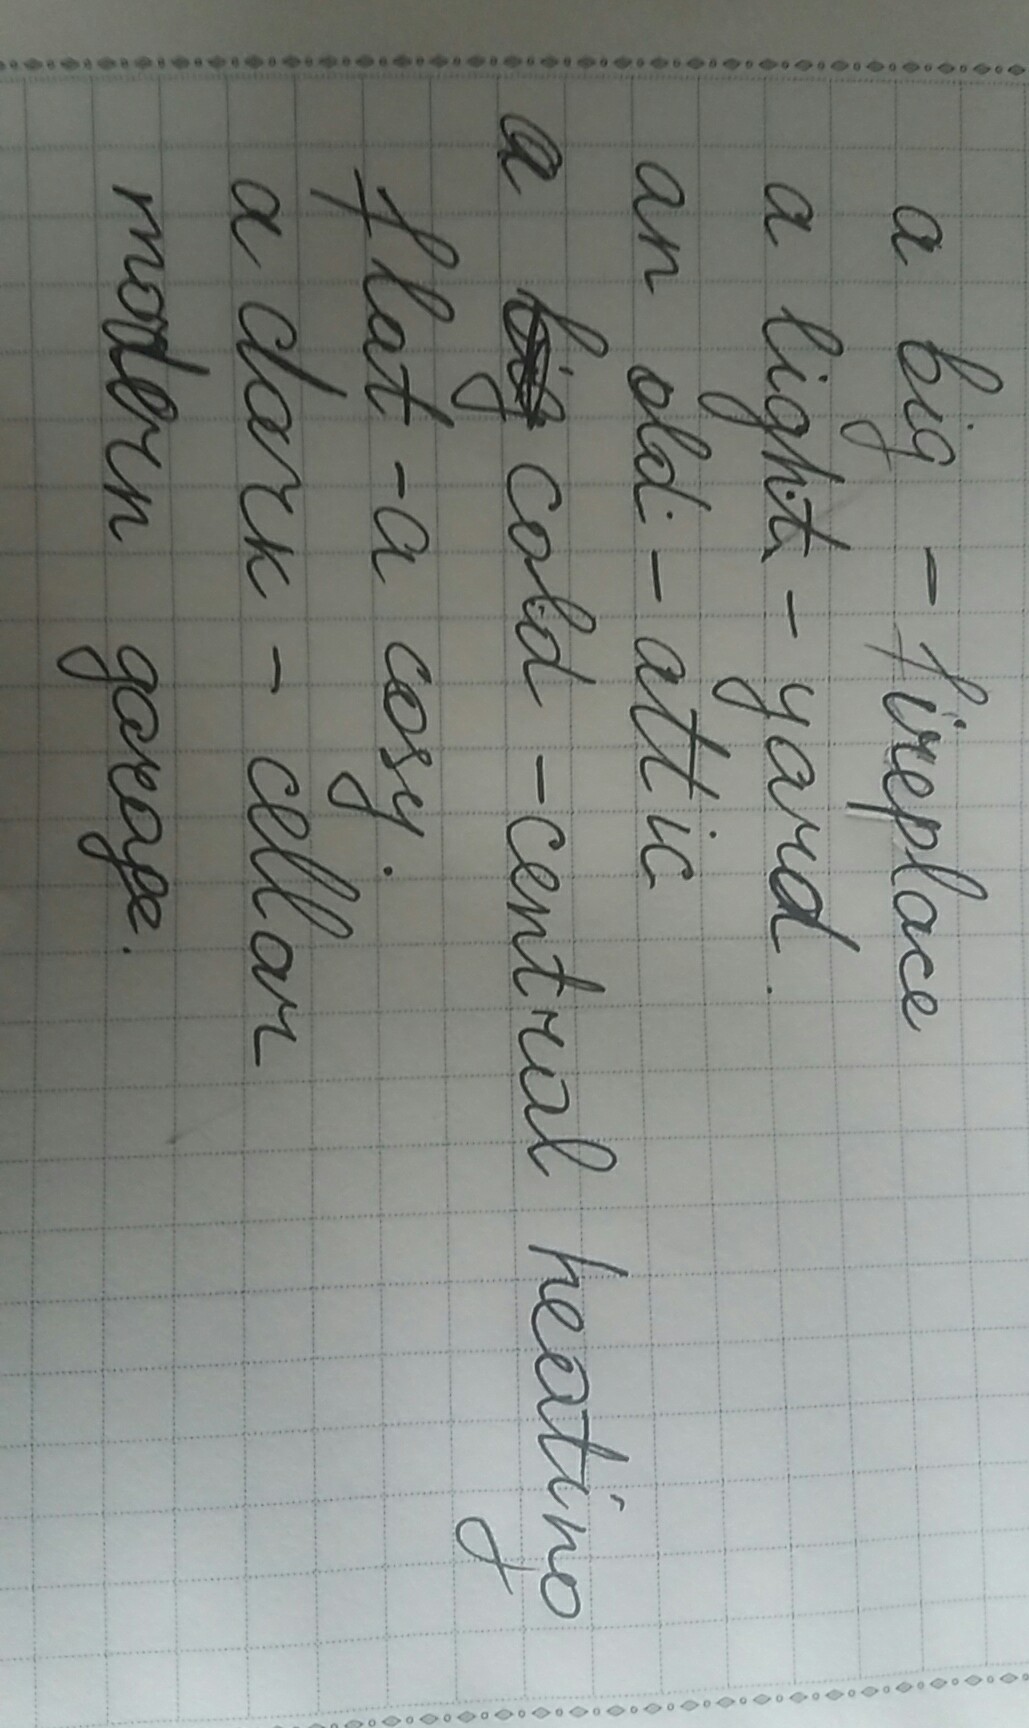 a big - fireplace
a light - yard.
an old - attic
a cold - central heating
flat - a cosy.
a dark - cellar
modern garage.